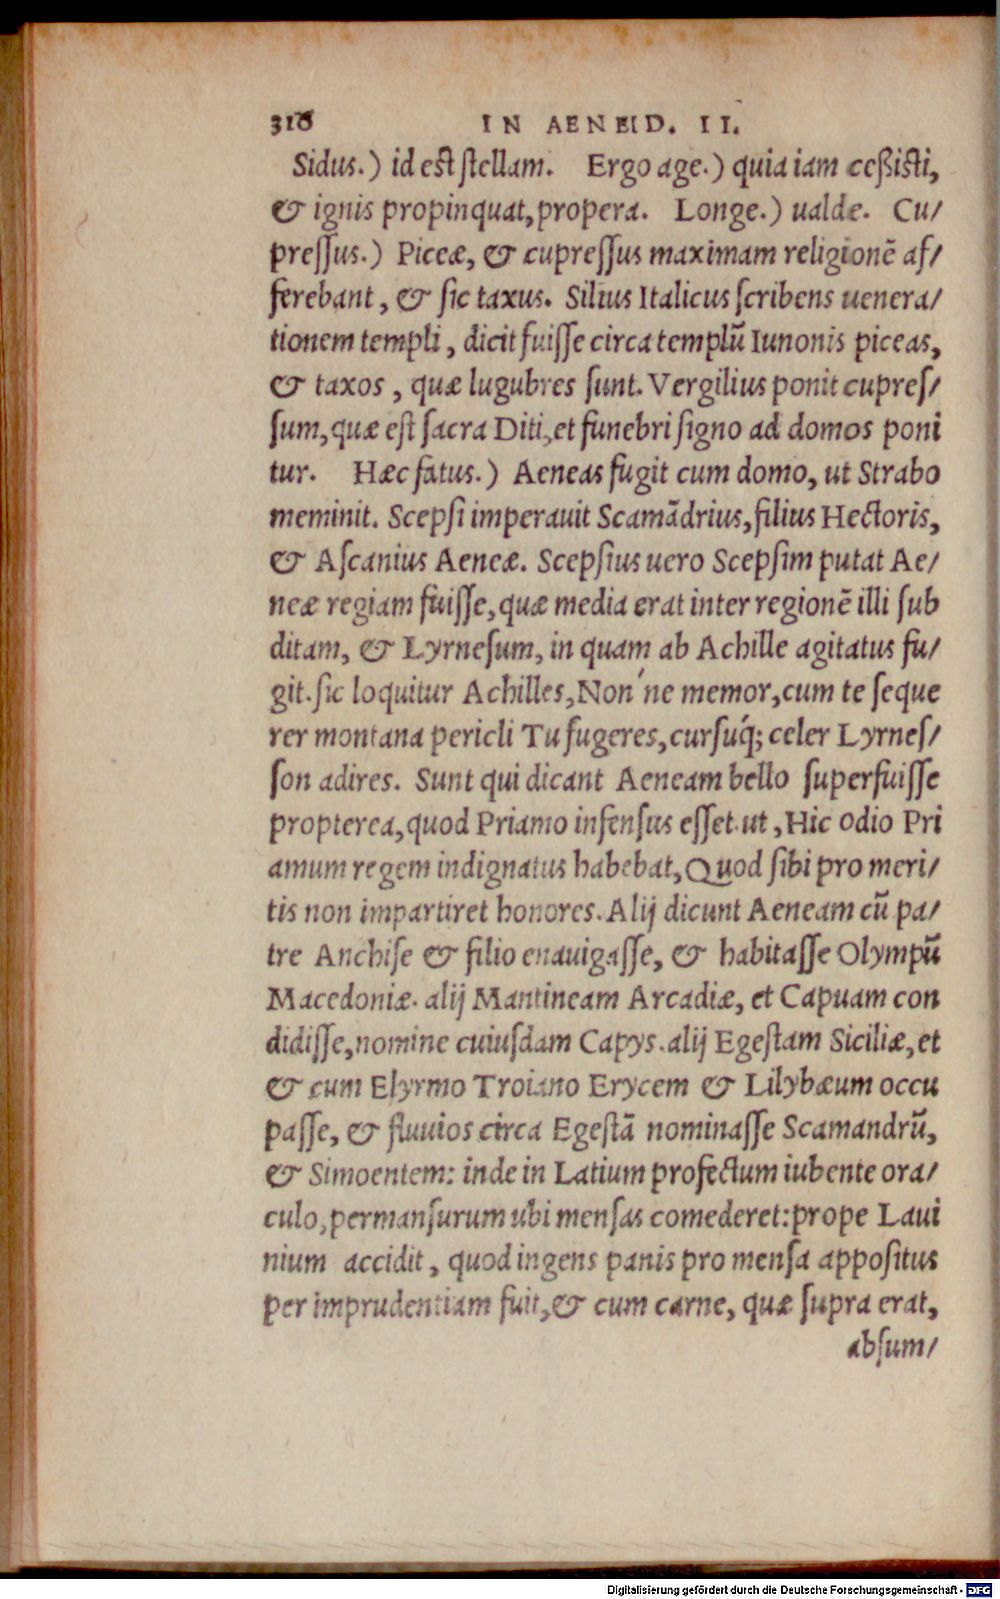 318 IN AENEID. II.
Sidus.) id est ſtellam. Ergo age.) quia iam ceßiſti,
& ignis propinquat, propera. Longe.) ualde. Cu/
preſſus.) Piceæ, & cupreſſus maximam religionē af/
ferebant, & ſic taxus. Silius Italicus ſcribens uenera/
tionem templi, dicit fuiſſe circa templū Iunonis piceas,
& taxos, quæ lugubres ſunt. Vergilius ponit cupreſ/
ſum, quæ eſt ſacra Diti, et funebri ſigno ad domos poni
tur. Hæc fatus.) Aeneas fugit cum domo, ut Strabo
meminit. Scepſi imperauit Scamādrius, filius Hectoris,
& Aſcanius Aeneæ. Scepſius uero Scepſim putat Ae/
neæ regiam fuiſſe, quæ media erat inter regionē illi ſub
ditam, & Lyrneſum, in quam ab Achille agitatus fu/
git. ſic loquitur Achilles, Non'ne memor, cum te ſeque
rer montana pericli Tu fugeres, curſuq́; celer Lyrneſ/
ſon adires. Sunt qui dicant Aeneam bello ſuperfuiſſe
propterea, quod Priamo infenſus eſſet. ut, Hic odio Pri
amum regem indignatus habebat, Quod ſibi pro meri/
tis non impartiret honores. Alij dicunt Aeneam cū pa/
tre Anchiſe & filio enauigaſſe, & habitaſſe Olympū
Macedoniæ. alij Mantineam Arcadiæ, et Capuam con
didiſſe, nomine cuiuſdam Capys. alij Egeſtam Siciliæ, et
& cum Elyrmo Troiano Erycem & Lilybæum occu
paſſe, & fluuios circa Egeſtā nominaſſe Scamandrū,
& Simoentem: inde in Latium profectum iubente ora/
culo, permanſurum ubi menſas comederet: prope Laui
nium accidit, quod ingens panis pro menſa appoſitus
per imprudentiam fuit, & cum carne, quæ ſupra erat,
abſum/
Digitalisierung gefördert durch die Deutsche Forschungsgemeinschaft - DFG